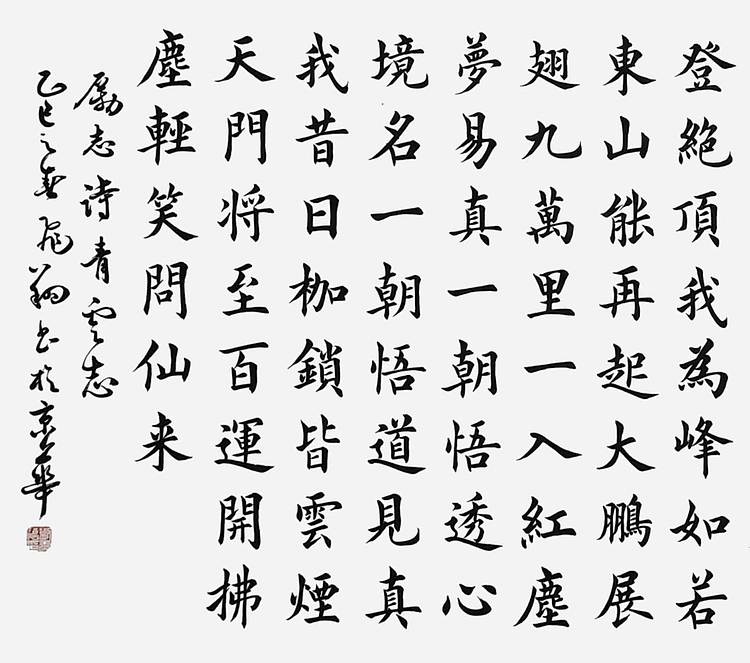 登絕頂我為峰如若
東山能再起大鵬展
翅九萬里一入紅塵
夢易真一朝悟透心
境名一朝悟道見真
我昔日枷鎖皆雲煙
天門将至百運開拂
塵輕笑問仙来
勵志诗青雲志
乙巳之春飛翔书於京華